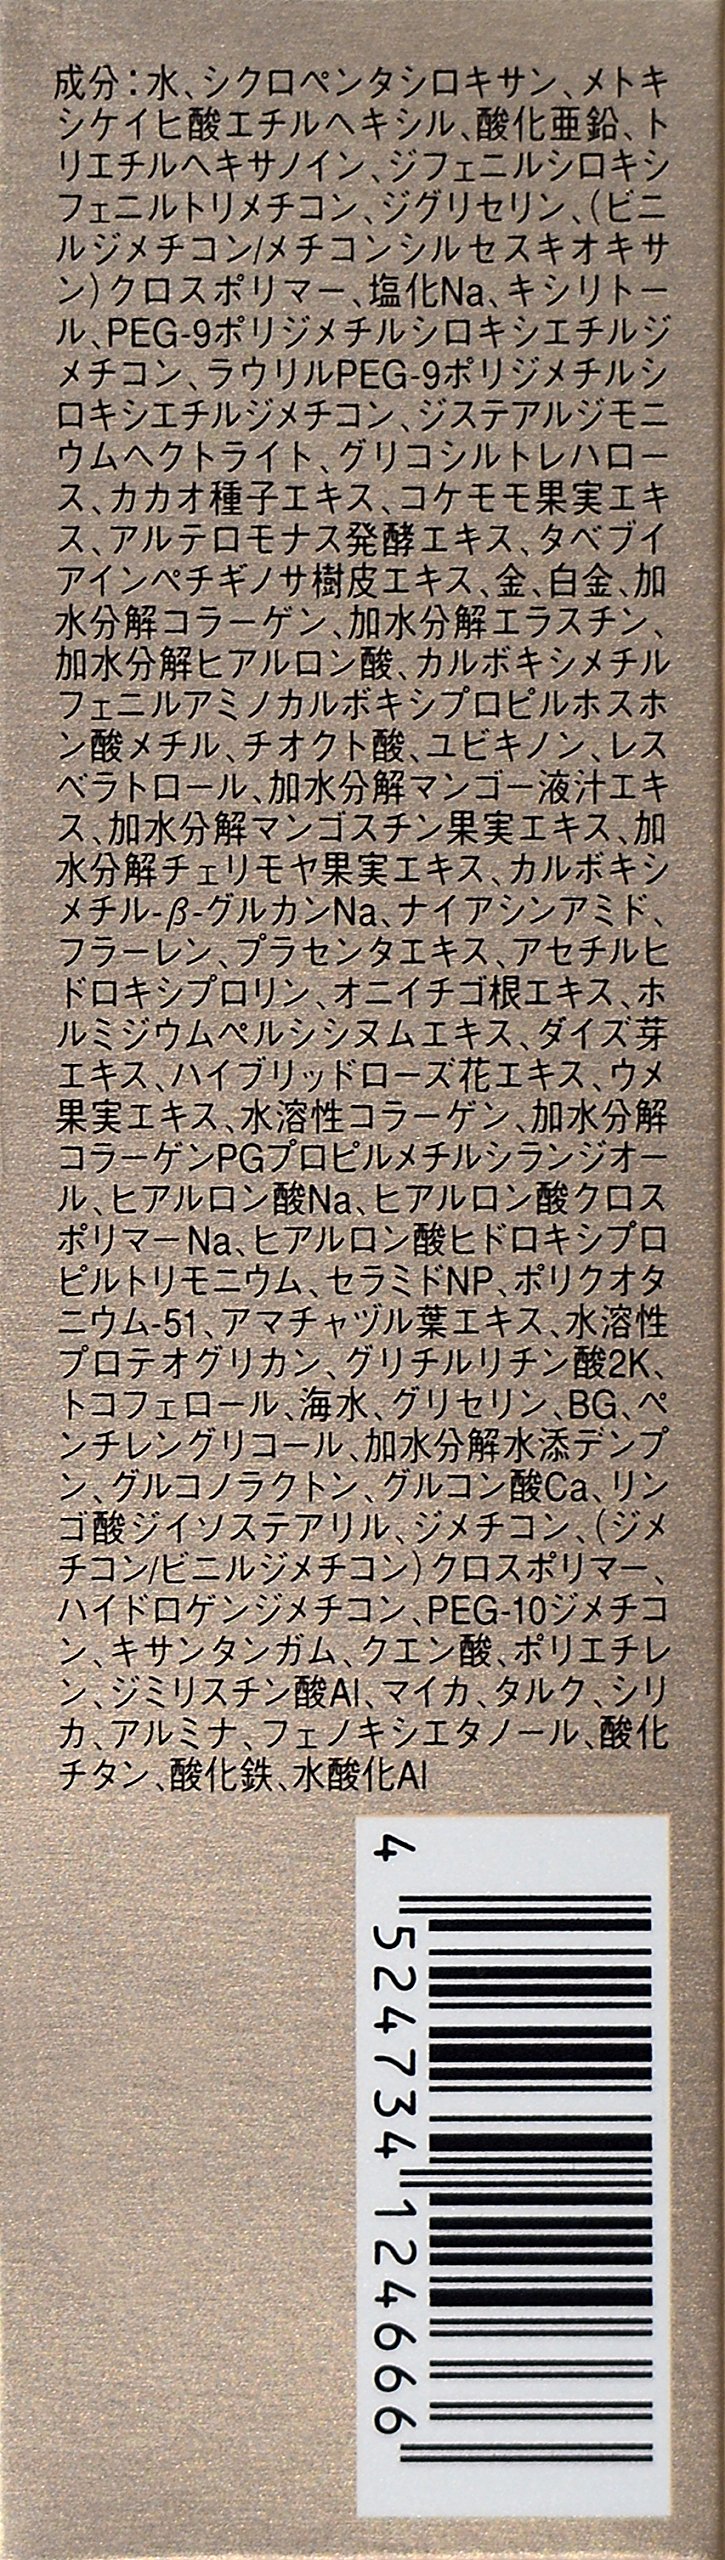 成分：水、シクロペンタシロキサン、メトキ
シケイヒ酸エチルヘキシル、酸化亜鉛、ト
リエチルヘキサノイン、ジフェニルシロキシ
フェニルトリメチコン、ジグリセリン、（ビニ
ルジメチコン/メチコンシルセスキオキサ
ン）クロスポリマー、塩化Na、キシリトー
ル、PEG-9ポリジメチルシロキシエチルジ
メチコン、ラウリルPEG-9ポリジメチルシ
ロキシエチルジメチコン、ジステアルジモニ
ウムヘクトライト、グリコシルトレハロー
ス、カカオ種子エキス、コケモモ果実エキ
ス、アルテロモナス発酵エキス、タベブイ
アインペチギノサ樹皮エキス、金、白金、加
水分解コラーゲン、加水分解エラスチン、
加水分解ヒアルロン酸、カルボキシメチル
フェニルアミノカルボキシプロピルホスホ
ン酸メチル、チオクト酸、ユビキノン、レス
ベラトロール、加水分解マンゴー液汁エキ
ス、加水分解マンゴスチン果実エキス、加
水分解チェリモヤ果実エキス、カルボキシ
メチル-β-グルカンNa、ナイアシンアミド、
フラーレン、プラセンタエキス、アセチルヒ
ドロキシプロリン、オニイチゴ根エキス、ホ
ルミジウムペルシシヌムエキス、ダイズ芽
エキス、ハイブリッドローズ花エキス、ウメ
果実エキス、水溶性コラーゲン、加水分解
コラーゲンPGプロピルメチルシランジオー
ル、ヒアルロン酸Na、ヒアルロン酸クロス
ポリマーNa、ヒアルロン酸ヒドロキシプロ
ピルトリモニウム、セラミドNP、ポリクオタ
ニウム-51、アマチャヅル葉エキス、水溶性
プロテオグリカン、グリチルリチン酸2K、
トコフェロール、海水、グリセリン、BG、ペ
ンチレングリコール、加水分解水添デンプ
ン、グルコノラクトン、グルコン酸Ca、リン
ゴ酸ジイソステアリル、ジメチコン、（ジメ
チコン/ビニルジメチコン）クロスポリマー、
ハイドロゲンジメチコン、PEG-10ジメチコ
ン、キサンタンガム、クエン酸、ポリエチレ
ン、ジミリスチン酸Al、マイカ、タルク、シリ
カ、アルミナ、フェノキシエタノール、酸化
チタン、酸化鉄、水酸化Al
4 524734 124666